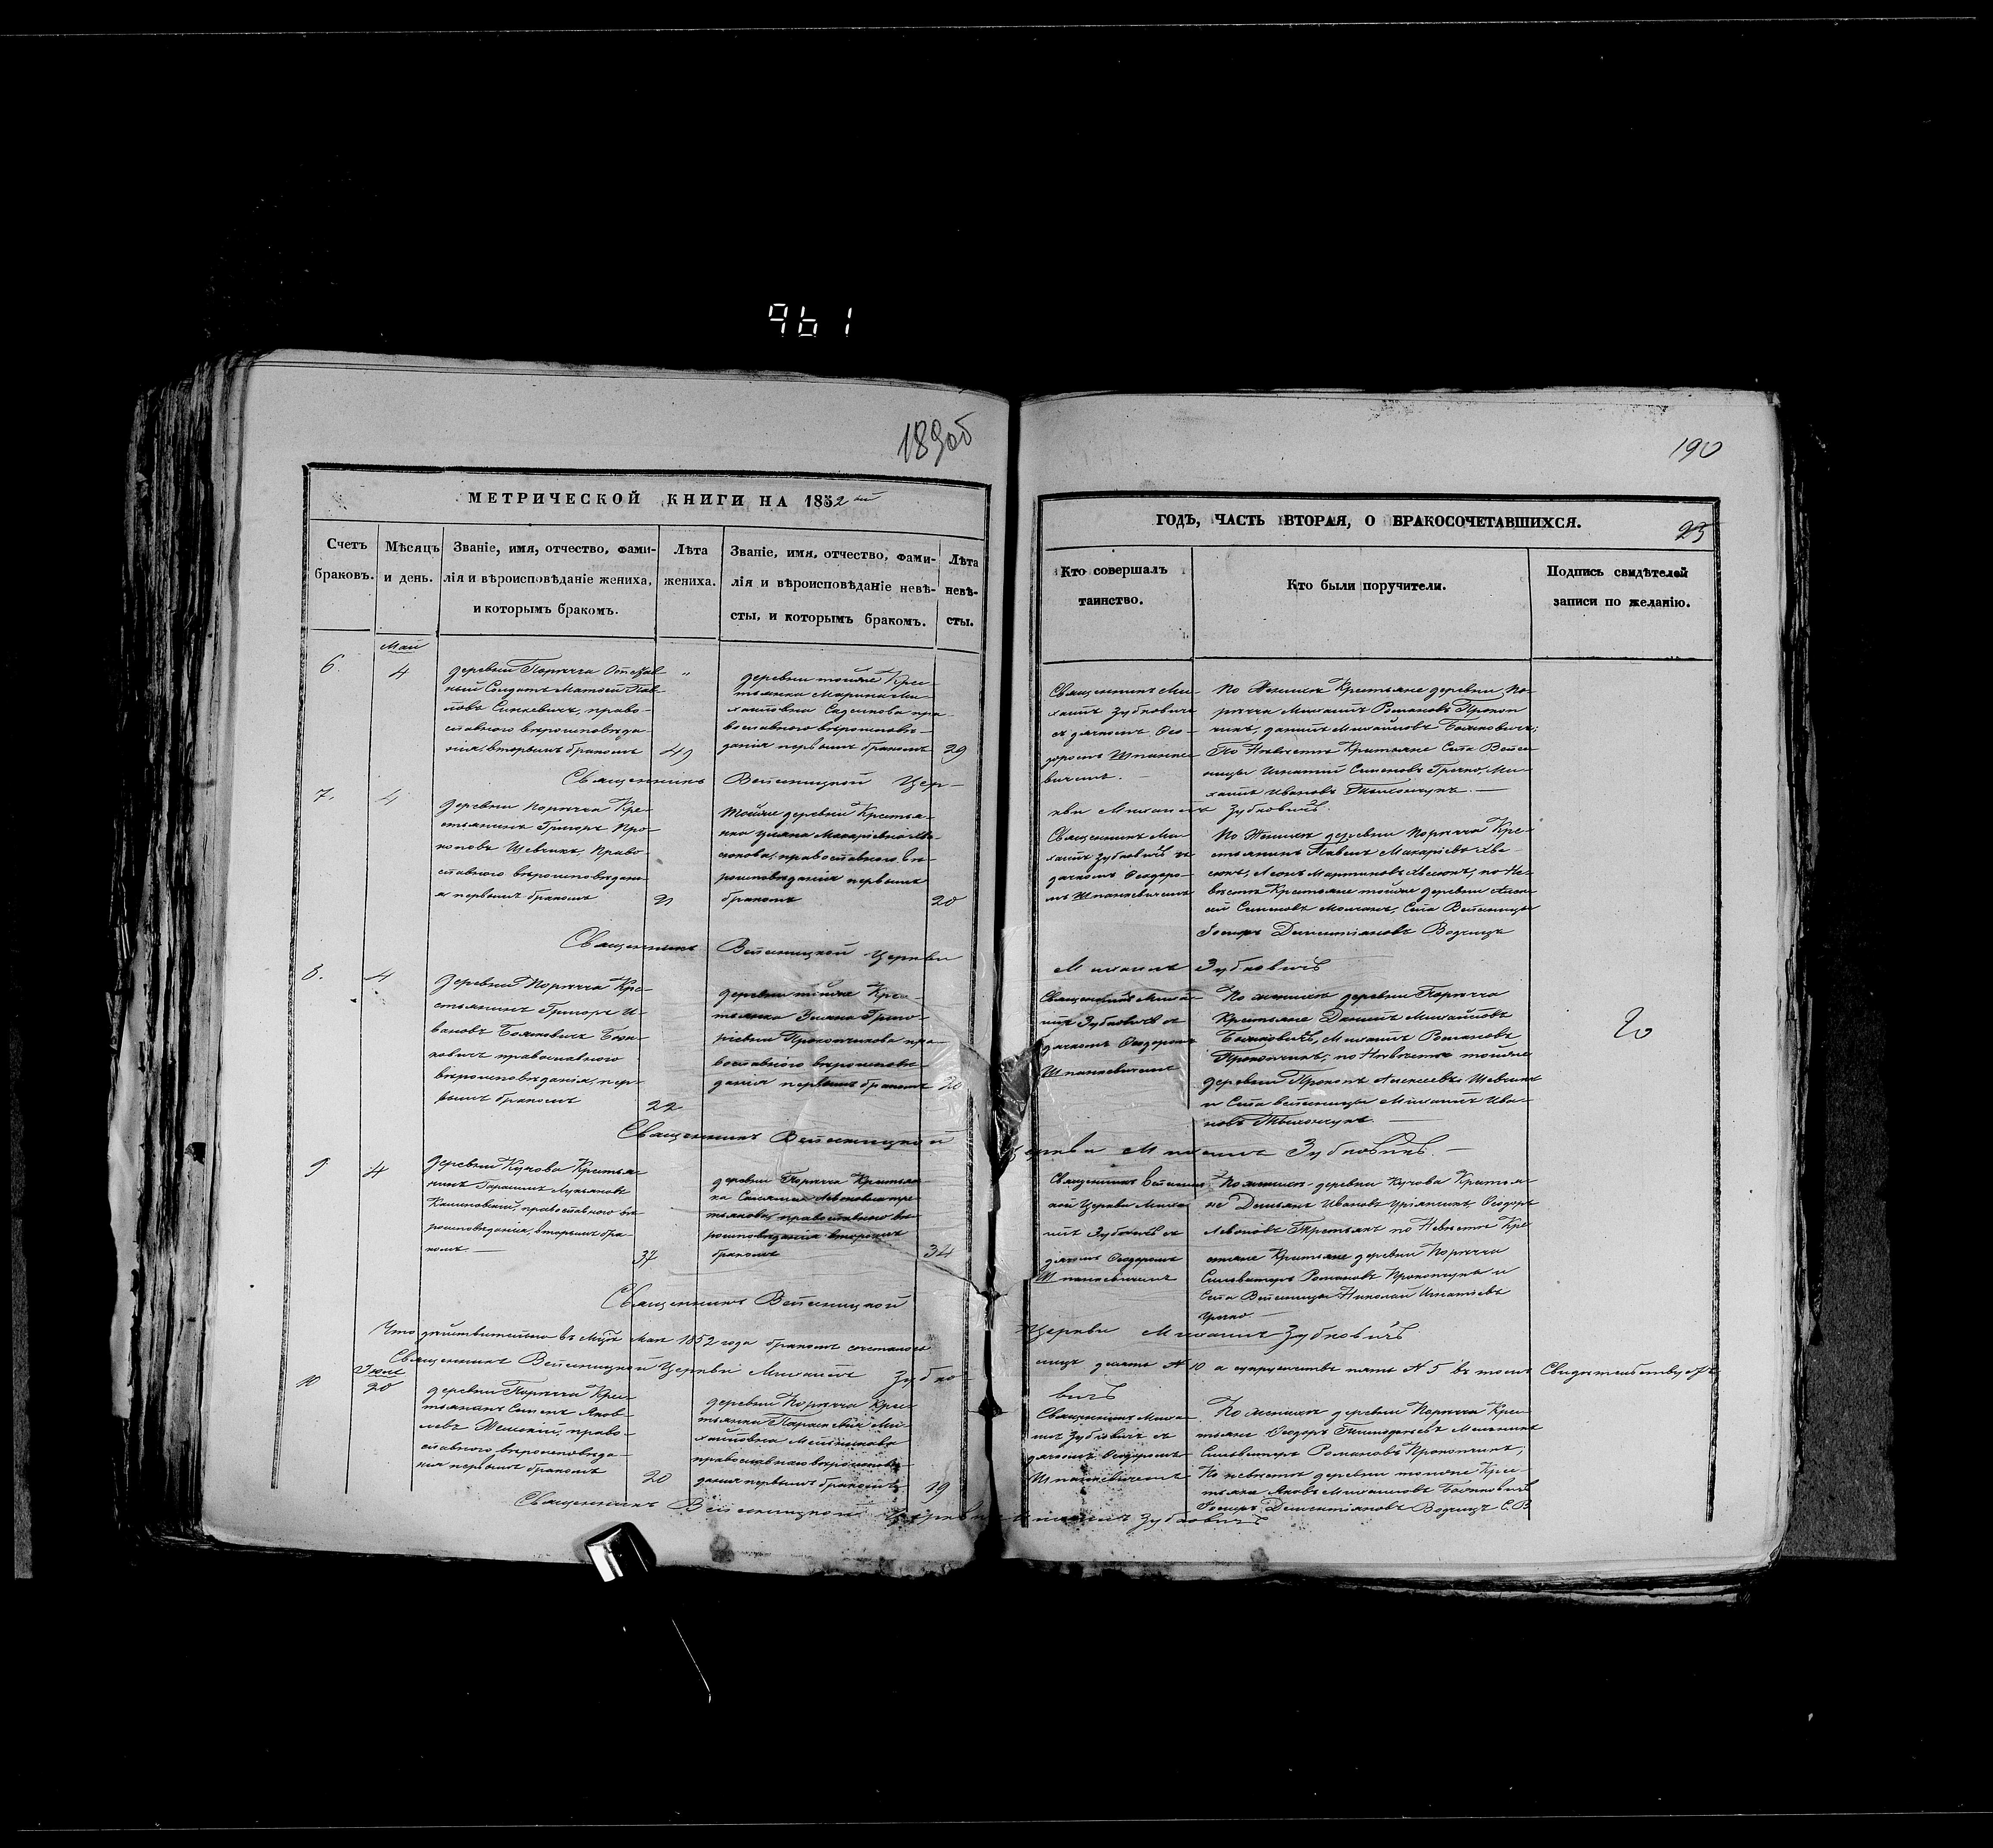 961
189об
190
МЕТРИЧЕСКОЙ КНИГИ НА 1852 ой
ГОДЪ, ЧАСТЬ ВТОРАЯ, О БРАКОСОЧЕТАВШИХСЯ.
25
Счетъ браковъ.
Мѣсяцъ и день.
Званіе, имя, отчество, фами-
лія и вѣроисповѣданіе жениха,
и которымъ бракомъ.
Лѣта жениха.
Званіе, имя, отчество, фами-
лія и вѣроисповѣданіе невѣ-
сты, и которымъ бракомъ.
Лѣта невѣ-
сты.
Кто совершалъ
таинство.
Кто были поручители.
Подпись свидѣтелей
записи по желанію.
Май
6
4
деревни Порѣчча
ный Солдатъ Матѳей Пав-
ловъ Синкевичъ, право-
славнаго вѣроисповѣда-
нія, вторымъ бракомъ
49
деревни тойже Кре-
стьянка Марина Ми-
хайловна пра-
вославнаго вѣроисповѣ-
данія первымъ бракомъ
29
Священникъ Ми-
хаилъ Зубковичъ
съ дячкомъ Ѳео-
доромъ Шпанке-
вичемъ.
По Женихѣ Крестьяне деревни По-
рѣчча Михаилъ Романовъ Прокоп
чикъ, Даніилъ Михайловъ Божковичъ;
По Невѣстѣ Крестьяне Села Велес
ницы Игнатій Семеновъ Гречко, Ми-
хаилъ Ивановъ
Священникъ Велесницкой Цер-
кви Михаилъ Зубковичъ.
7.
4
деревни Порѣчча Кре-
стьянинъ Григоръ Про-
коповъ Шевчикъ, Право-
славнаго вѣроисповѣдані-
я первымъ бракомъ
21
Тойже деревни Крестья-
нка Макаріевна
православнаго вѣ-
роисповѣданія первымъ
бракомъ
20
Священникъ Ми-
хаилъ Зубковичъ съ
дячкомъ Ѳеодоро-
мъ Шпанкевичемъ
По Женихѣ деревни Порѣчча Кре-
стьянинъ Павелъ Макаріевъ Хве-
сюкъ, Леонъ Мартиновъ Хвесюкъ, по Не-
вѣстѣ Крестьяне тойже деревни Алек-
сѣй Семеновъ Села Велесницы
Священникъ Велесницкой Церкви
Михаилъ Зубковичъ
8.
4
деревни Порѣчча Кре-
стьянинъ Григоръ И-
вановъ Божкевичъ Бож-
ковичъ православнаго
вѣроисповѣданія, пер-
вымъ бракомъ
22
деревни тойже Крес-
тьянка Григо-
ріевна Прокопчикова пра-
вославнаго вѣроисповѣ-
данія первымъ бракомъ
20
Священникъ Миха-
илъ Зубковичъ съ
дячкомъ Ѳеодоромъ
Шпанкевичемъ
По женихѣ деревни Порѣчча
Крестьяне Даніилъ Михайловъ
Божковичъ, Михаилъ Романовъ
Прокопчикъ; по Невѣстѣ тойже
деревни Прокопъ Алексѣевъ Шевчикъ
и Села Велесницы Михаилъ Ива-
новъ
20
Священникъ Велесницкой
Церкви Михаилъ Зубковичъ.
9
4
деревни Кучова Крестья-
нинъ Герасимъ Лукьяновъ
православнаго вѣ-
роисповѣданія, вторымъ бра-
комъ
37
деревни Порѣчча Крестьян-
ка
православнаго вѣ-
роисповѣданія вторымъ
бракомъ
34
Священникъ Велесниц-
кой Церкви Миха-
илъ Зубковичъ съ
дячкомъ Ѳеодоромъ
Шпанкевичемъ
По женихѣ деревни Кучова Крестья-
не Демьянъ Ивановъ Ѳеодоръ
Леоновъ Третьякъ по Невѣстѣ Кре
стьяне Крестьяне деревни Порѣчча
Сильвестеръ Романовъ Прокопчукъ и
Села Велесницы Николай Игнатіевъ
Гречко
Священникъ Велесницкой
Церкви Михаилъ Зубковичъ
Что дѣйствительно въ Мцѣ Маѣ 1852 года бракомъ сочеталось
лицъ десять № 10 а супружествъ пять № 5 въ томъ Свидѣтельствуетъ
Священникъ Велесницкой Церкви Михаилъ Зубко-
вичъ
10
20
деревни Порѣчча Крес-
тьянинъ Семенъ Яков-
левъ право-
славнаго вѣроисповѣда-
нія первымъ бракомъ
20
деревни Порѣчча Крес-
тьянка Параскевія Ми-
хайловна Мельникова
православнаго вѣроисповѣ-
данія первымъ бракомъ
19
Священникъ Миха-
илъ Зубковичъ съ
дячкомъ Ѳеодоромъ
Шпанкевичемъ
По женихѣ деревни Порѣчча Крес-
тьяне Ѳеодоръ Тимоѳеевъ Мельникъ
Сильвестеръ Романовъ Прокопчикъ,
По невѣстѣ деревни тойже Крес-
тьяне Яковъ Михайловъ Божковичъ
Священникъ Велесницкой Церкви Михаилъ Зубковичъ